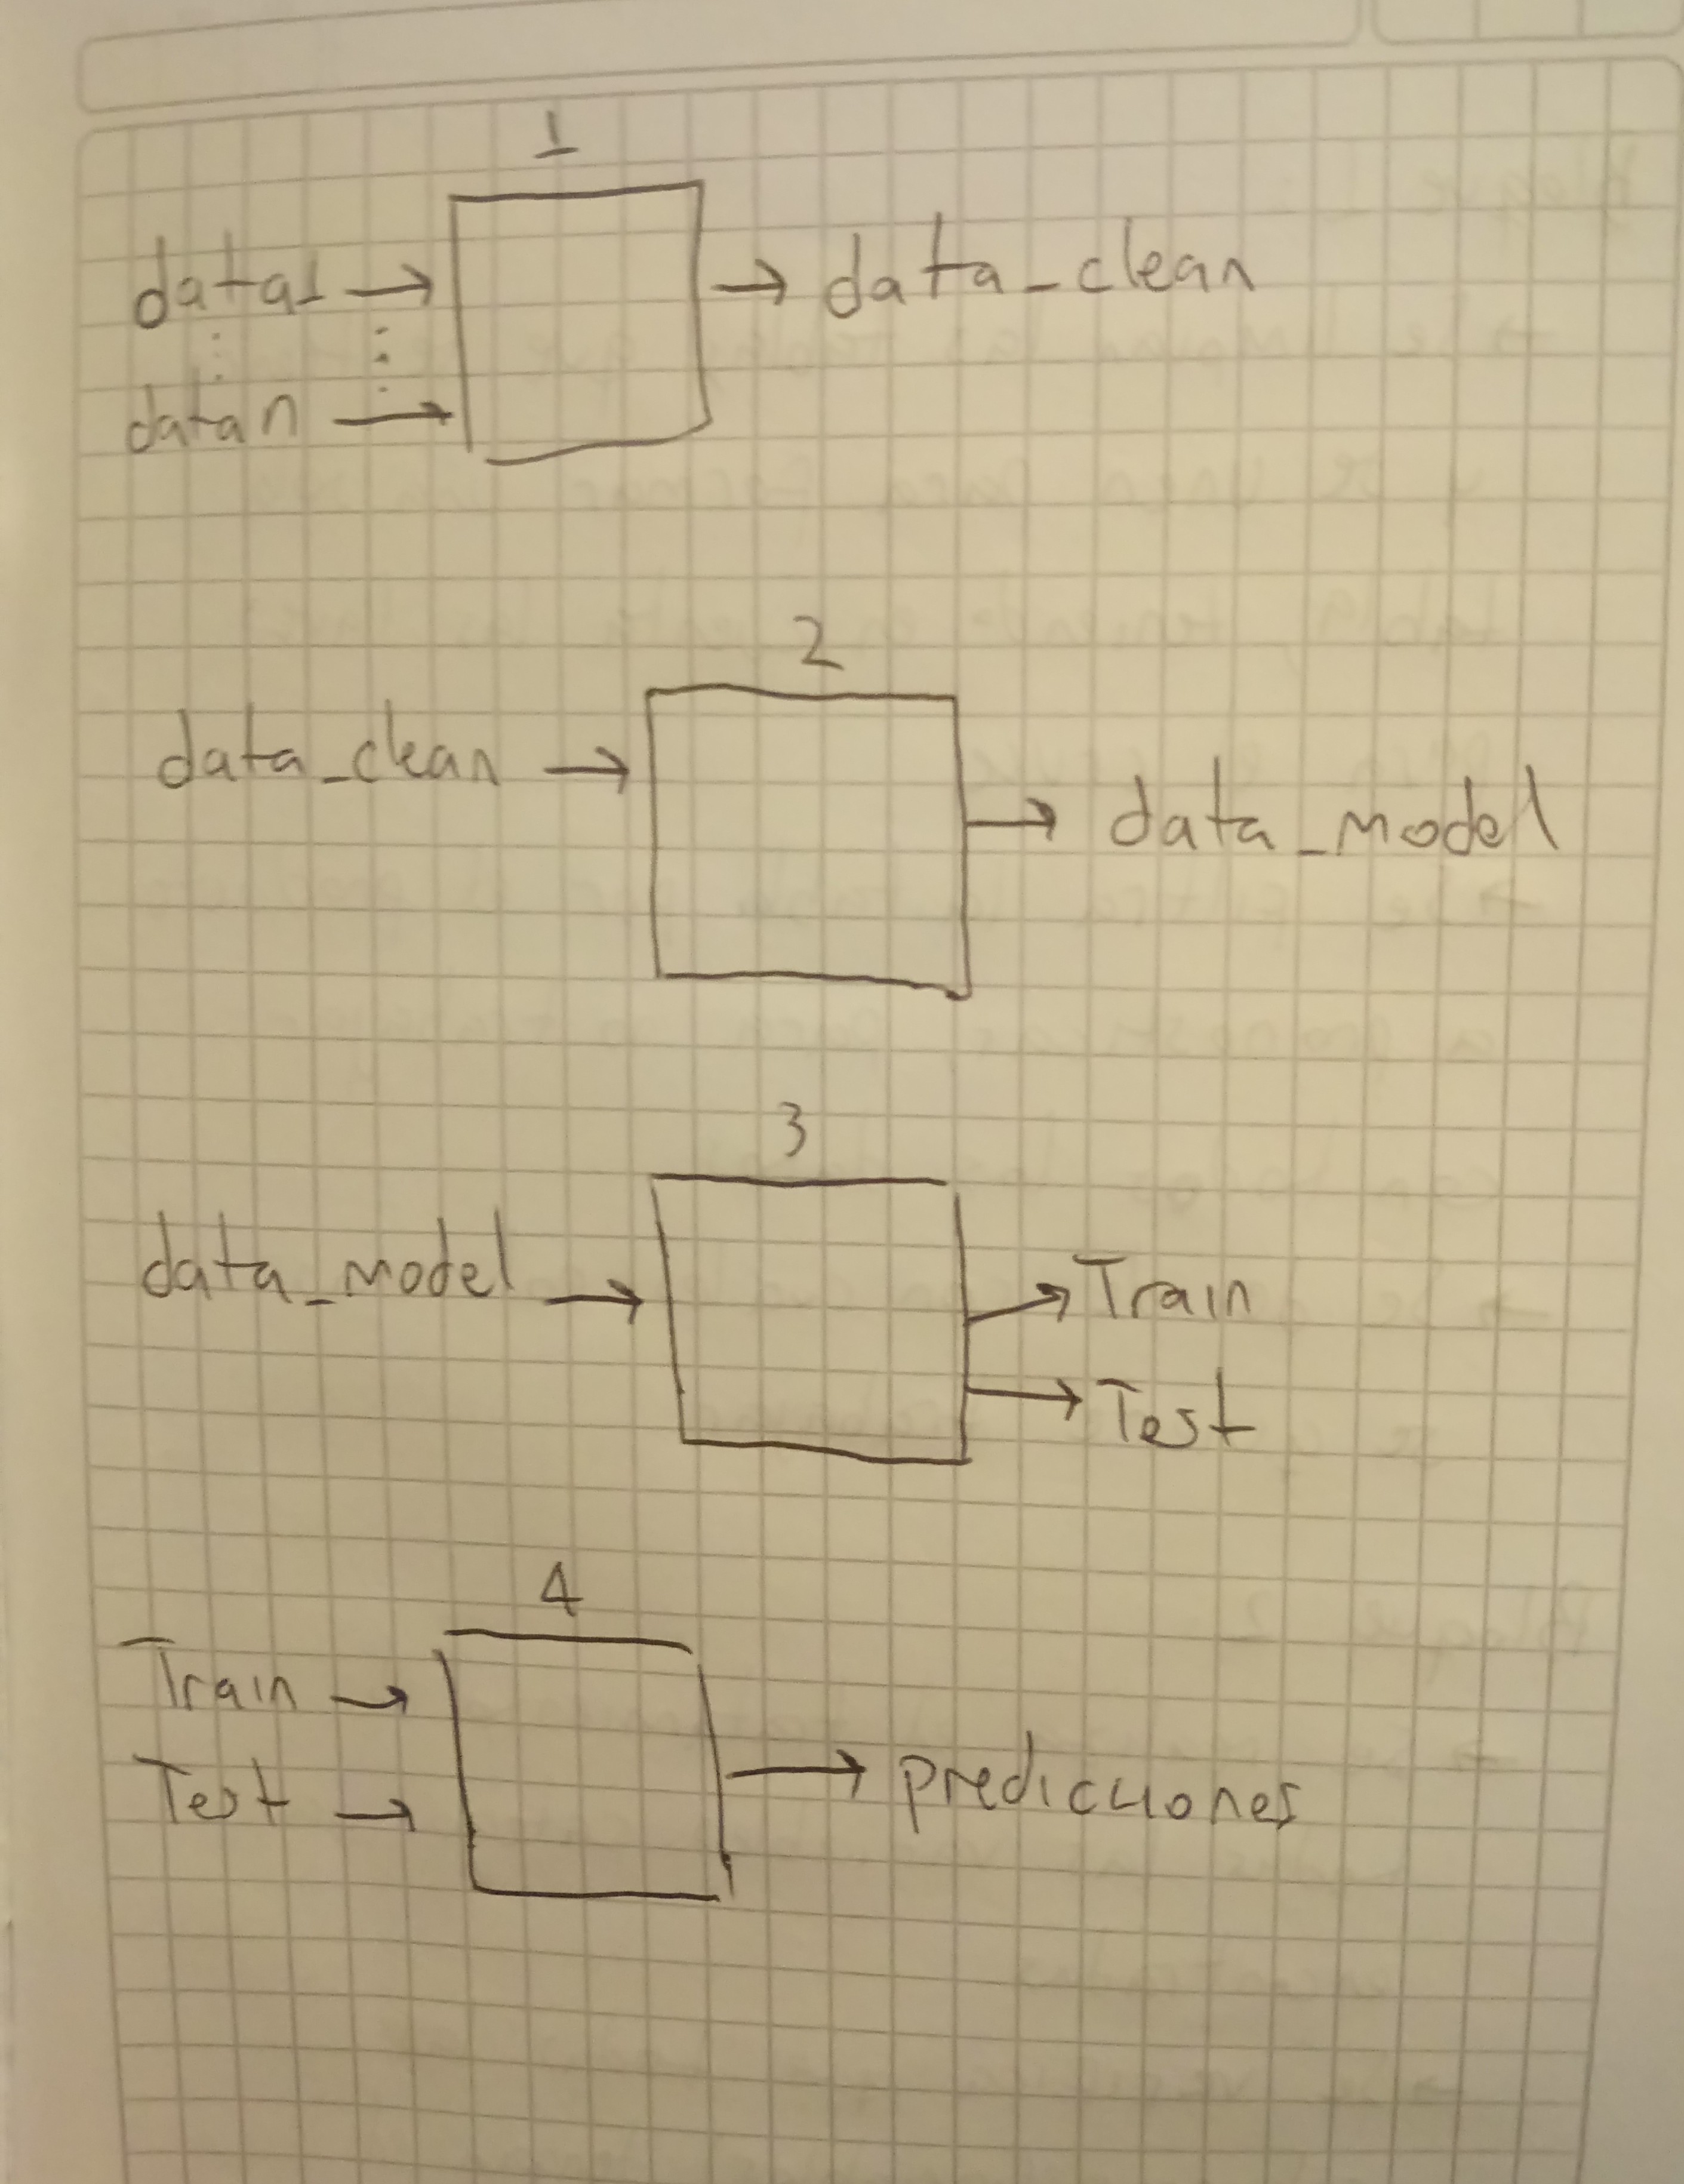 1
data1 → → data_clean
datan →
2
data_clean →
→ data_model
3
data_model →
→ Train
→ Test
4
Train →
Test → → predicciones